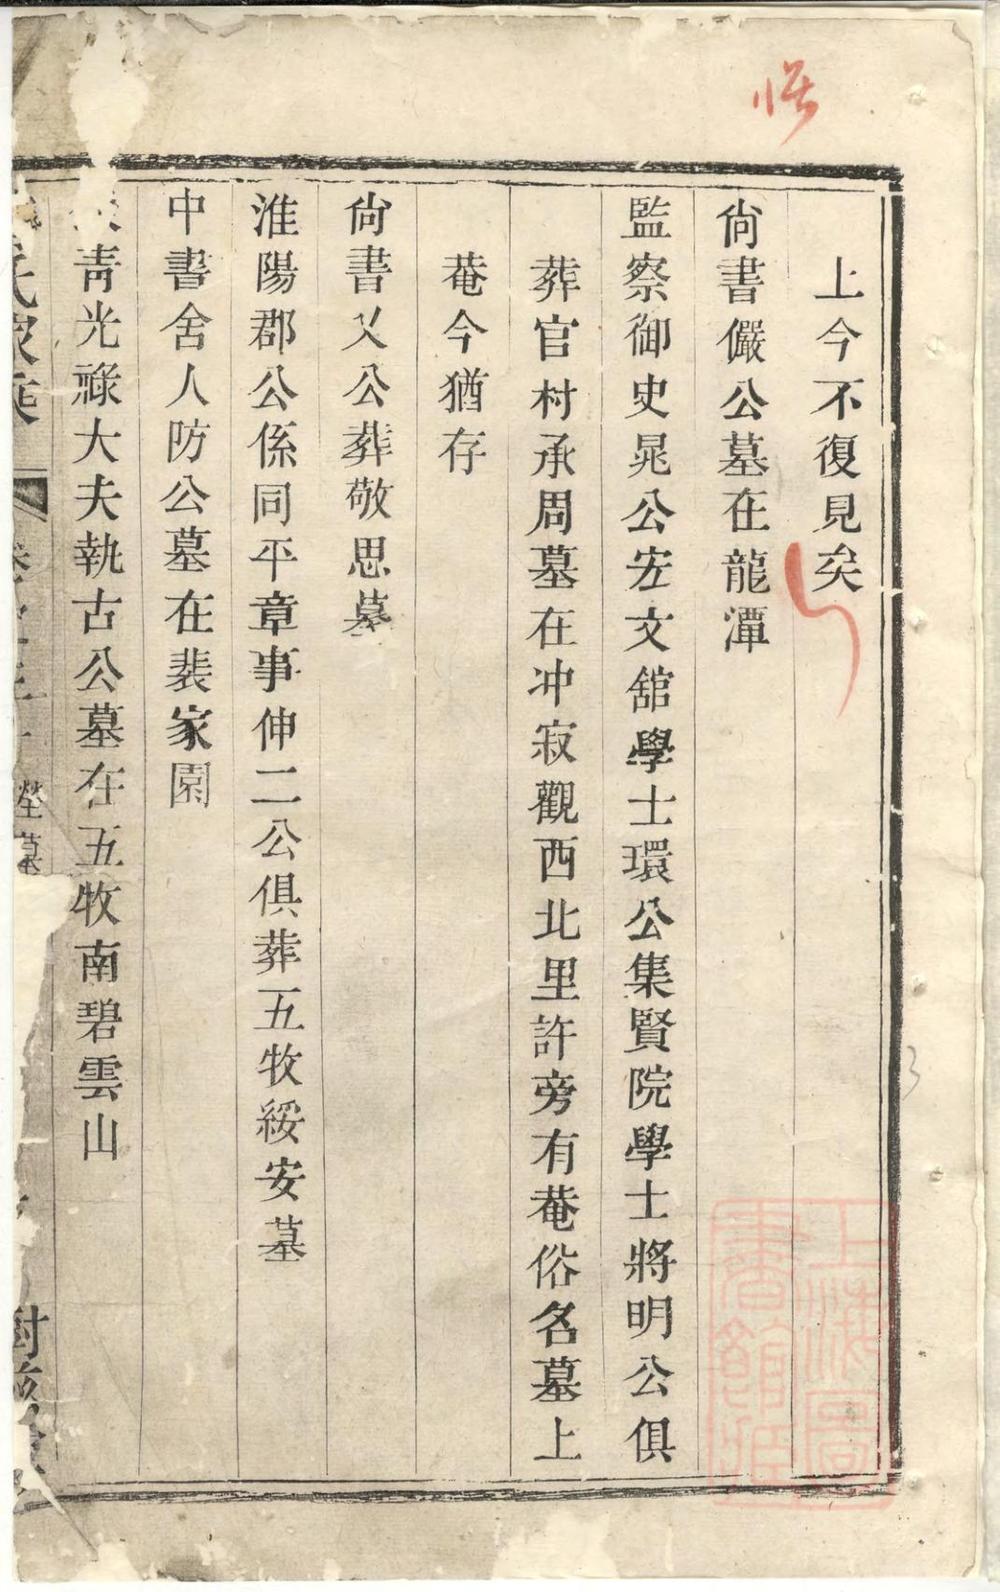 上今不復見矣
尙書儼公墓在龍潭
監察御史晁公宏文舘學士環公集賢院學士將明公俱
葬官村承周墓在冲寂觀西北里許旁有菴俗名墓上
菴今猶存
尙書乂公葬敬思墓
淮陽郡公係同平章事伸二公俱葬五牧綏安墓
中書舍人防公墓在裴家園
青光祿大夫執古公墓在五牧南碧雲山
氏家乘
塋墓
上海圖
書館藏